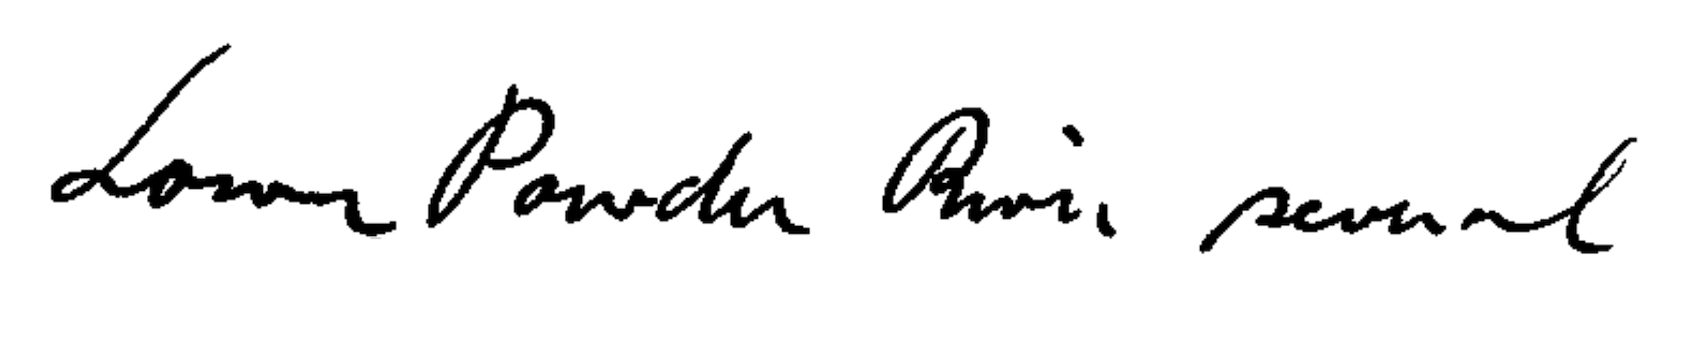 Lower Powder River several